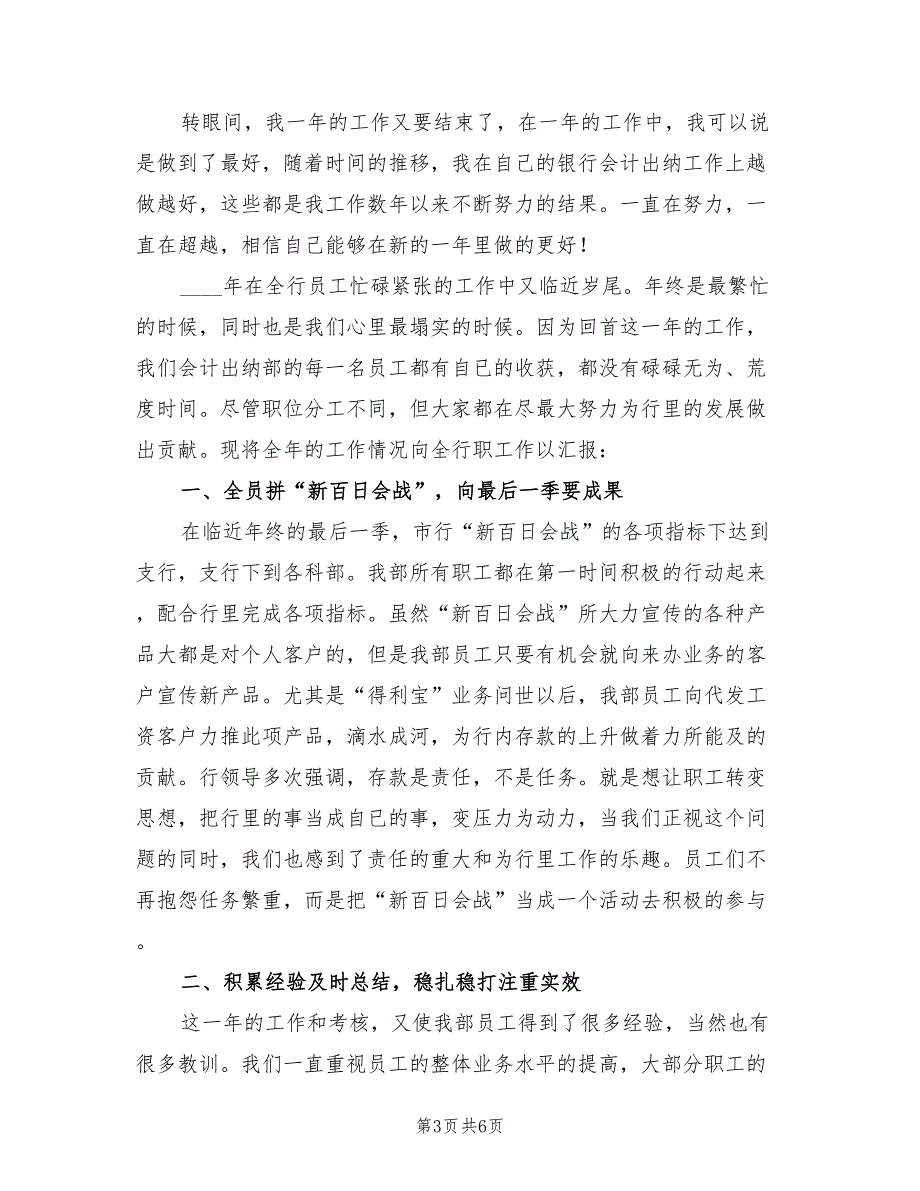 转眼间，我一年的工作又要结束了，在一年的工作中，我可以说
是做到了最好，随着时间的推移，我在自己的银行会计出纳工作上越
做越好，这些都是我工作数年以来不断努力的结果。一直在努力，一
直在超越，相信自己能够在新的一年里做的更好！
____年在全行员工忙碌紧张的工作中又临近岁尾。年终是最繁忙
的时候，同时也是我们心里最塌实的时候。因为回首这一年的工作，
我们会计出纳部的每一名员工都有自已的收获，都没有碌碌无为、荒
度时间。尽管职位分工不同，但大家都在尽最大努力为行里的发展做
出贡献。现将全年的工作情况向全行职工作以汇报：
一、全员拼“新百日会战”，向最后一季要成果
在临近年终的最后一季，市行“新百日会战”的各项指标下达到
支行，支行下到各科部。我部所有职工都在第一时间积极的行动起来
，配合行里完成各项指标。虽然“新百日会战”所大力宣传的各种产
品大都是对个人客户的，但是我部员工只要有机会就向来办业务的客
户宣传新产品。尤其是“得利宝”业务问世以后，我部员工向代发工
资客户力推此项产品，滴水成河，为行内存款的上升做着力所能及的
贡献。行领导多次强调，存款是责任，不是任务。就是想让职工转变
思想，把行里的事当成自已的事，变压力为动力，当我们正视这个问
题的同时，我们也感到了责任的重大和为行里工作的乐趣。员工们不
再抱怨任务繁重，而是把“新百日会战”当成一个活动去积极的参与
。
二、积累经验及时总结，稳扎稳打注重实效
这一年的工作和考核，又使我部员工得到了很多经验，当然也有
很多教训。我们一直重视员工的整体业务水平的提高，大部分职工的
第3页共6页